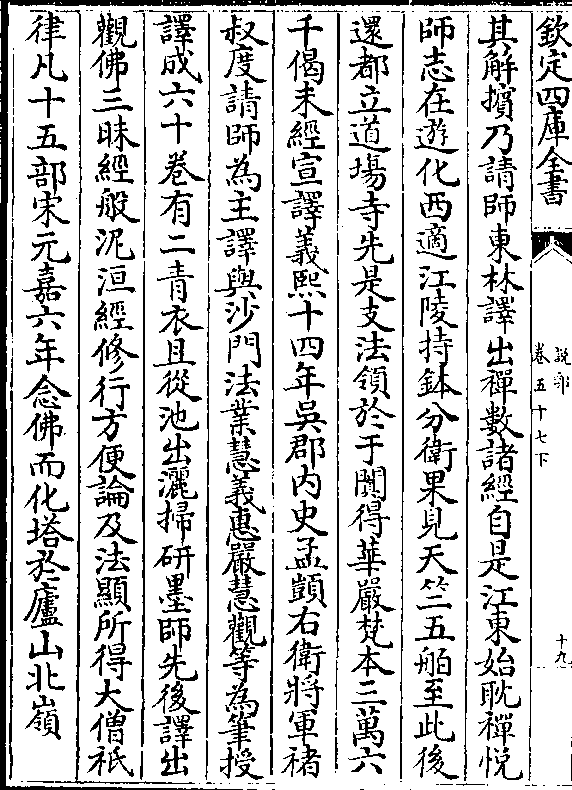 欽定四庫全書
說郛
卷五十七下
十九
其解擯乃請師東林譯出禪數諸經自是江東始耽禪悅
師志在遊化西適江陵持鉢分衛果見天竺五舶至此後
還都立道場寺先是支法領於于闐得華嚴梵本三萬六
千偈未經宣譯義熙十四年吳郡內史孟顗右衛將軍褚
叔度請師為主譯與沙門法業慧義惠嚴慧觀等為筆授
譯成六十卷有二青衣且從池出灑掃研墨師先後譯出
觀佛三昧經般泥洹經修行方便論及法顯所得大僧祇
律凡十五部宋元嘉六年念佛而化塔於廬山北嶺